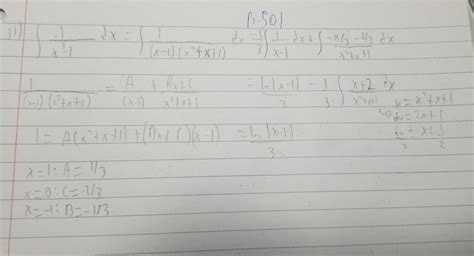 p.501
31) ∫ 1/(x³-1) dx = ∫ 1/((x-1)(x²+x+1)) dx = 1/3 ∫ 1/(x-1) dx + ∫ (-x/3 - 2/3)/(x²+x+1) dx
1/((x-1)(x²+x+1)) = A/(x-1) + (Bx+C)/(x²+x+1) = ln|x-1|/3 - 1/3 ∫ (x+2)/(x²+x+1) dx
u = x²+x+1
du = 2x+1
1 = A(x²+x+1) + (Bx+C)(x-1) = ln|x-1|/3
x=1: A=1/3
x=0: C=-2/3
x=-1: B=-1/3